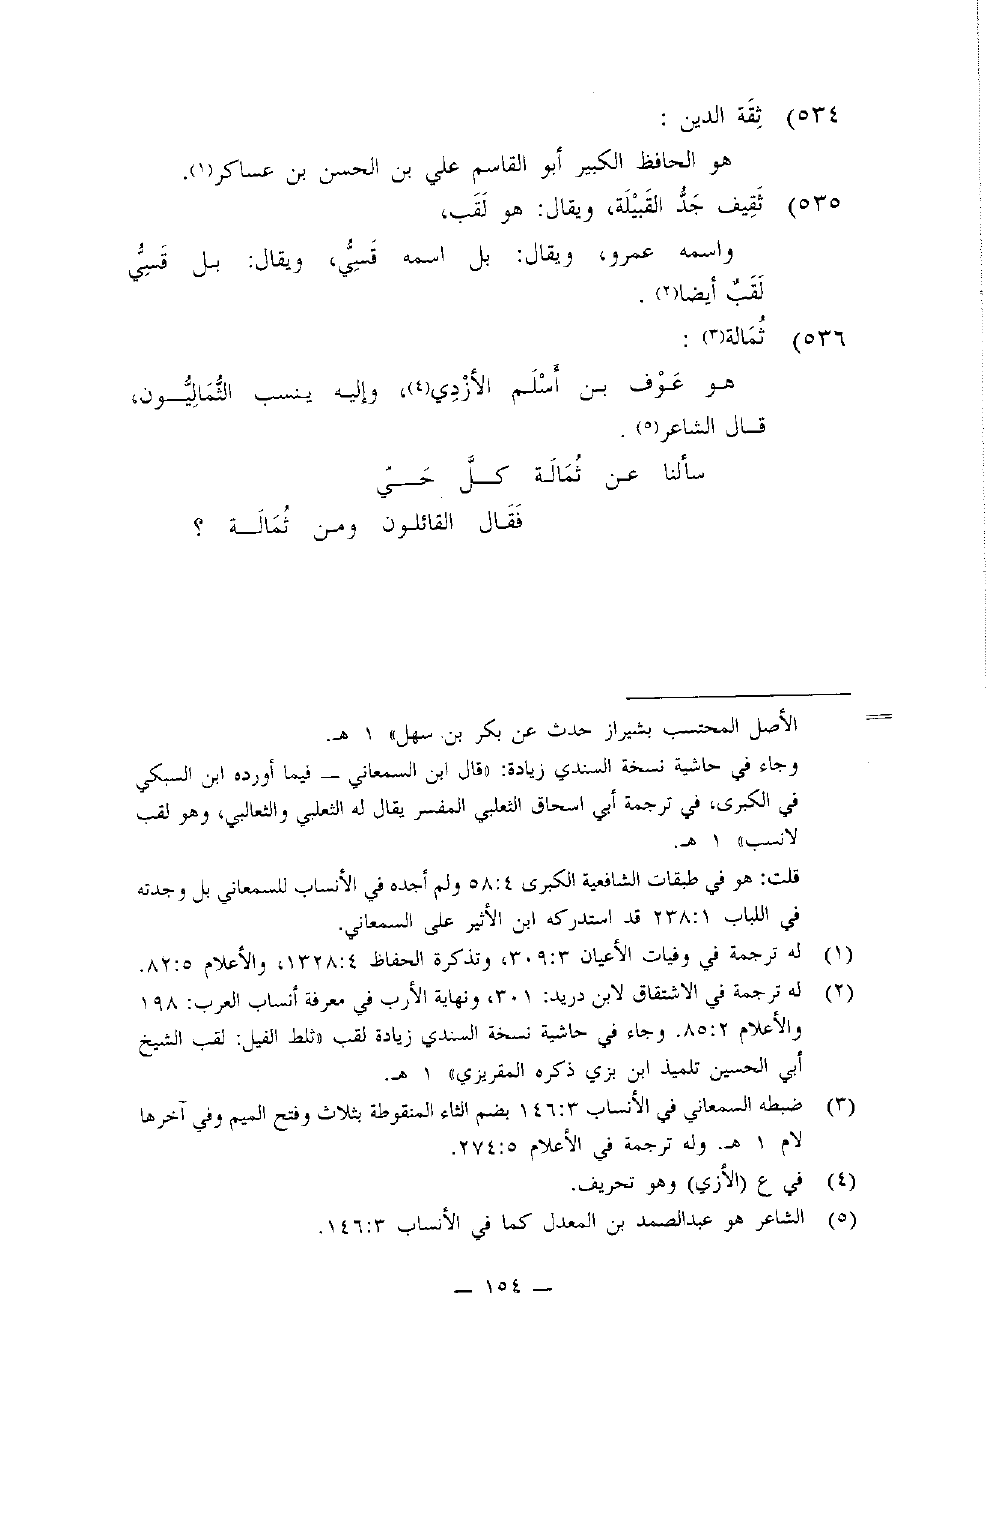 ٥٣٤) ثِقَة الدين :
هو الحافظ الكبير أبو القاسم علي بن الحسن بن عساكر(١).
٥٣٥) ثَقِيف جَدُّ القَبِيْلَة، ويقال: هو لَقَب،
واسمه عمرو، ويقال: بل اسمه قَسِيُّ، ويقال: بل قَسِيُّ
لَقَبٌ أيضا(٢) .
٥٣٦) ثُمَالة(٣) :
هو عَوْف بن أَسْلَم الأزْدِي(٤)، وإليه ينسب الثُّمَالِيُّون،
قال الشاعر(٥) .
سألنا عن ثُمَالَة كلَّ حَيّ
فَقَال القائلون ومن ثُمَالَة ؟
= الأصل المحتسب بشيراز حدث عن بكر بن سهل» ١ هـ.
وجاء في حاشية نسخة السندي زيادة: «قال ابن السمعاني ـ فيما أورده ابن السبكي
في الكبرى، في ترجمة أبي اسحاق الثعلبي المفسر يقال له الثعلبي والثعالبي، وهو لقب
لانسب» ١ هـ.
قلت: هو في طبقات الشافعية الكبرى ٥٨:٤ ولم أجده في الأنساب للسمعاني بل وجدته
في اللباب ٢٣٨:١ قد استدركه ابن الأثير على السمعاني.
(١) له ترجمة في وفيات الأعيان ٣٠٩:٣، وتذكرة الحفاظ ١٣٢٨:٤، والأعلام ٨٢:٥.
(٢) له ترجمة في الاشتقاق لابن دريد: ٣٠١، ونهاية الأرب في معرفة أنساب العرب: ١٩٨
والأعلام ٨٥:٢. وجاء في حاشية نسخة السندي زيادة لقب «ثلط الفيل: لقب الشيخ
أبي الحسين تلميذ ابن بزي ذكره المقريزي» ١ هـ.
(٣) ضبطه السمعاني في الأنساب ١٤٦:٣ بضم الثاء المنقوطة بثلاث وفتح الميم وفي آخرها
لام ١ هـ. وله ترجمة في الأعلام ٢٧٤:٥.
(٤) في ع (الأزي) وهو تحريف.
(٥) الشاعر هو عبدالصمد بن المعدل كما في الأنساب ١٤٦:٣.
ـ ١٥٤ ـ